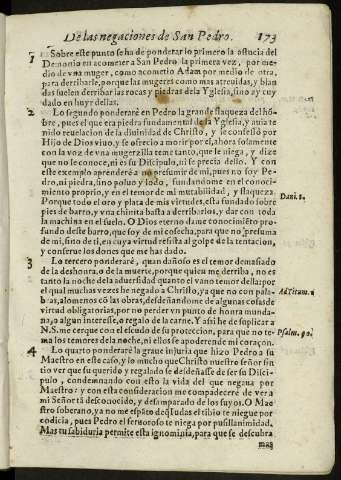 De las negaciones de San Pedro. 173
1 Sobre este punto se ha de ponderar lo primero la astucia del
Demonio en acometer a San Pedro la primera vez, por me-
dio de vna muger, como acometio Adam por medio de otra,
para derribarle, porque las mugeres como mas atreuidas, y blan
das suelen derribar las rocas y piedras de la Yglesia, sino ay cuy
dado en huyr dellas.
2 Lo segundo ponderaré en Pedro la grande flaqueza del hõ-
bre, pues el que era piedra fundamental de la Yglesia, y auia te
nido reuelacion de la diuinidad de Christo, y le confessó por
Hijo de Dios viuo, y se ofrecio a morir por el, ahora solamente
con la voz de vna mugerzilla teme tanto, que le niega, y dize
que no le conoce, ni es su Discipulo, ni se precia dello. Y con
este exemplo aprenderé a no presumir de mi, pues no soy Pe-
dro, ni piedra, sino poluo y lodo, fundandome en el conoci-
miento proprio, y en el temor de mi mutabilidad, y flaqueza.
Porque todo el oro y plata de mis virtudes, esta fundado sobre
pies de barro, y vna chinita basta a derribarlos, y dar con toda
la machina en el suelo. O Dios eterno dame conocimiẽto pro-
fundo deste barro, que soy de mi cosecha, para que no presuma
de mi, sino de ti, en cuya virtud resista al golpe de la tentacion,
y conserue los dones que me has dado.
Dani. 2.
3 Lo tercero ponderaré, quan dañoso es el temor demasiado
de la deshonra, o de la muerte, porque quien me derriba, no es
tanto la noche de la aduersidad quanto el vano temor della por
el qual muchas vezes he negado a Christo, ya que no con pala-
bras, alomenos cõ las obras, desdeñandome de algunas cosas de
virtud obligatorias, por no perder vn punto de honra munda-
na, o algun interesse, o regalo de la carne. Y assi he de suplicar a
N.S. me cerque con el escudo de su proteccion, para que no te-
ma los temores de la noche, ni ellos se apoderende mi coraçon.
Ad Titum. 1
Psalm. 90.
4 Lo quarto ponderaré la graue injuria que hizo Pedro a su
Maestro en este caso, y lo mucho que Christo nuestro señor sin
tio ver que su querido y regalado se desdeñasse de ser su Disci-
pulo, condemnando con esto la vida del que negaua por
Maestro: y con esta consideracion me compadecere de ver a
mi Señor tã desconocido, y desamparado de los suyos. O Mae
stro soberano, ya no me espãto de q̃ Iudas el tibio te niegue por
codicia, pues Pedro el feruoroso te niega por pusilanimidad.
Mas tu sabiduria permite esta ignominia, para que se descubra
mas